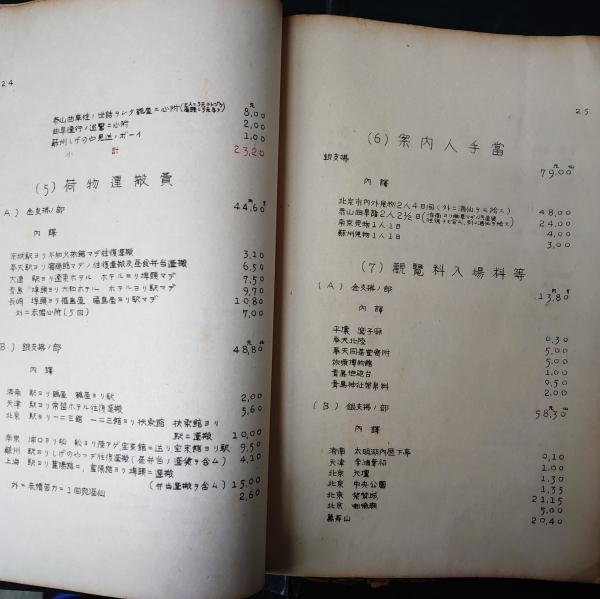 24
泰山曲阜GE世話ヲシタ鶴屋ニ心附
8,00
曲阜護行ノ巡警ニ心附 2,00
蘇州しげのや見送ノボーイ 1,00
小計 23,20
(5) 荷物運搬費
A) 金支拂ノ部 44.60
内譯
京城駅ヨリ不知火旅館マデ往復運搬 3,10
奉天駅ヨリ瀋陽館マデノ往復運搬及昼食弁当運搬 6,50
大連 駅ヨリ遼東ホテル ホテルヨリ埠頭マデ 7,50
青島 埠頭ヨリ大和ホテル ホテルヨリ駅マデ 9,70
長崎 埠頭ヨリ福島屋 福島屋ヨリ駅マデ 10,80
外ニ赤帽心附(5回) 7,00
B) 銀支拂ノ部 48,80
内譯
済南 駅ヨリ鶴屋 鶴屋ヨリ駅 2,00
天津 駅ヨリ常盤ホテル往復運搬 5,60
北京 駅ヨリ一二三館 一二三館ヨリ扶桑館 扶桑館ヨリ
駅ニ運搬 10,00
南京 浦口ヨリ船 船ヨリ陸アゲ宝来館ニ送リ宝来館ヨリ駅 9,50
蘇州 駅ヨリしげのやマデ往復運搬(昼弁当ノ運賃ヲ含ム) 4,10
上海 駅ヨリ萬歳館ニ、萬歳館ヨリ埠頭ニ運搬
(弁当運搬ヲ含ム) 15,00
2,60
25
(6) 案内人手當
銀支拂 79,00
内譯
北京市内外見物2人4日間(外ニ酒仙ヲモ給ス) 48,00
泰山曲阜諸2人2½日 24,00
南京見物1人1日 4,00
蘇州見物1人1日 3,00
(7) 観覧料入場料等
(A) 金支拂ノ部 13.80
内譯
平壌 箕子廟 0,30
奉天北陵 5,00
奉天同善堂寄附 5,00
旅順博物館 1,00
青島砲台 0,50
青島神社祭粢料 2,00
(B) 銀支拂ノ部 58,30
内譯
済南 大明湖内歴下亭 0,10
天津 李鴻章祠 1,00
北京 天壇 1,30
北京 中央公園 1,35
北京 紫禁城 21,15
北京 喇嘛廟 5,00
萬寿山 20,40